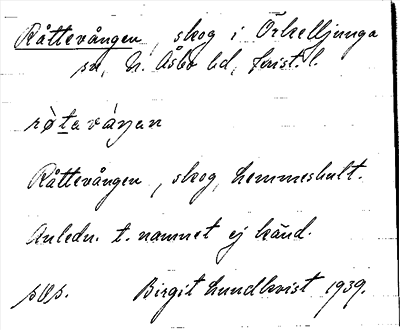 Råttevången, skog i Örkelljunga
sn, N. Åsbo hd, Krist. l.
Råttevången, skog, Hemmeshult.
Anledn. t. namnet ej känd.
Birgit Lundkvist 1939.